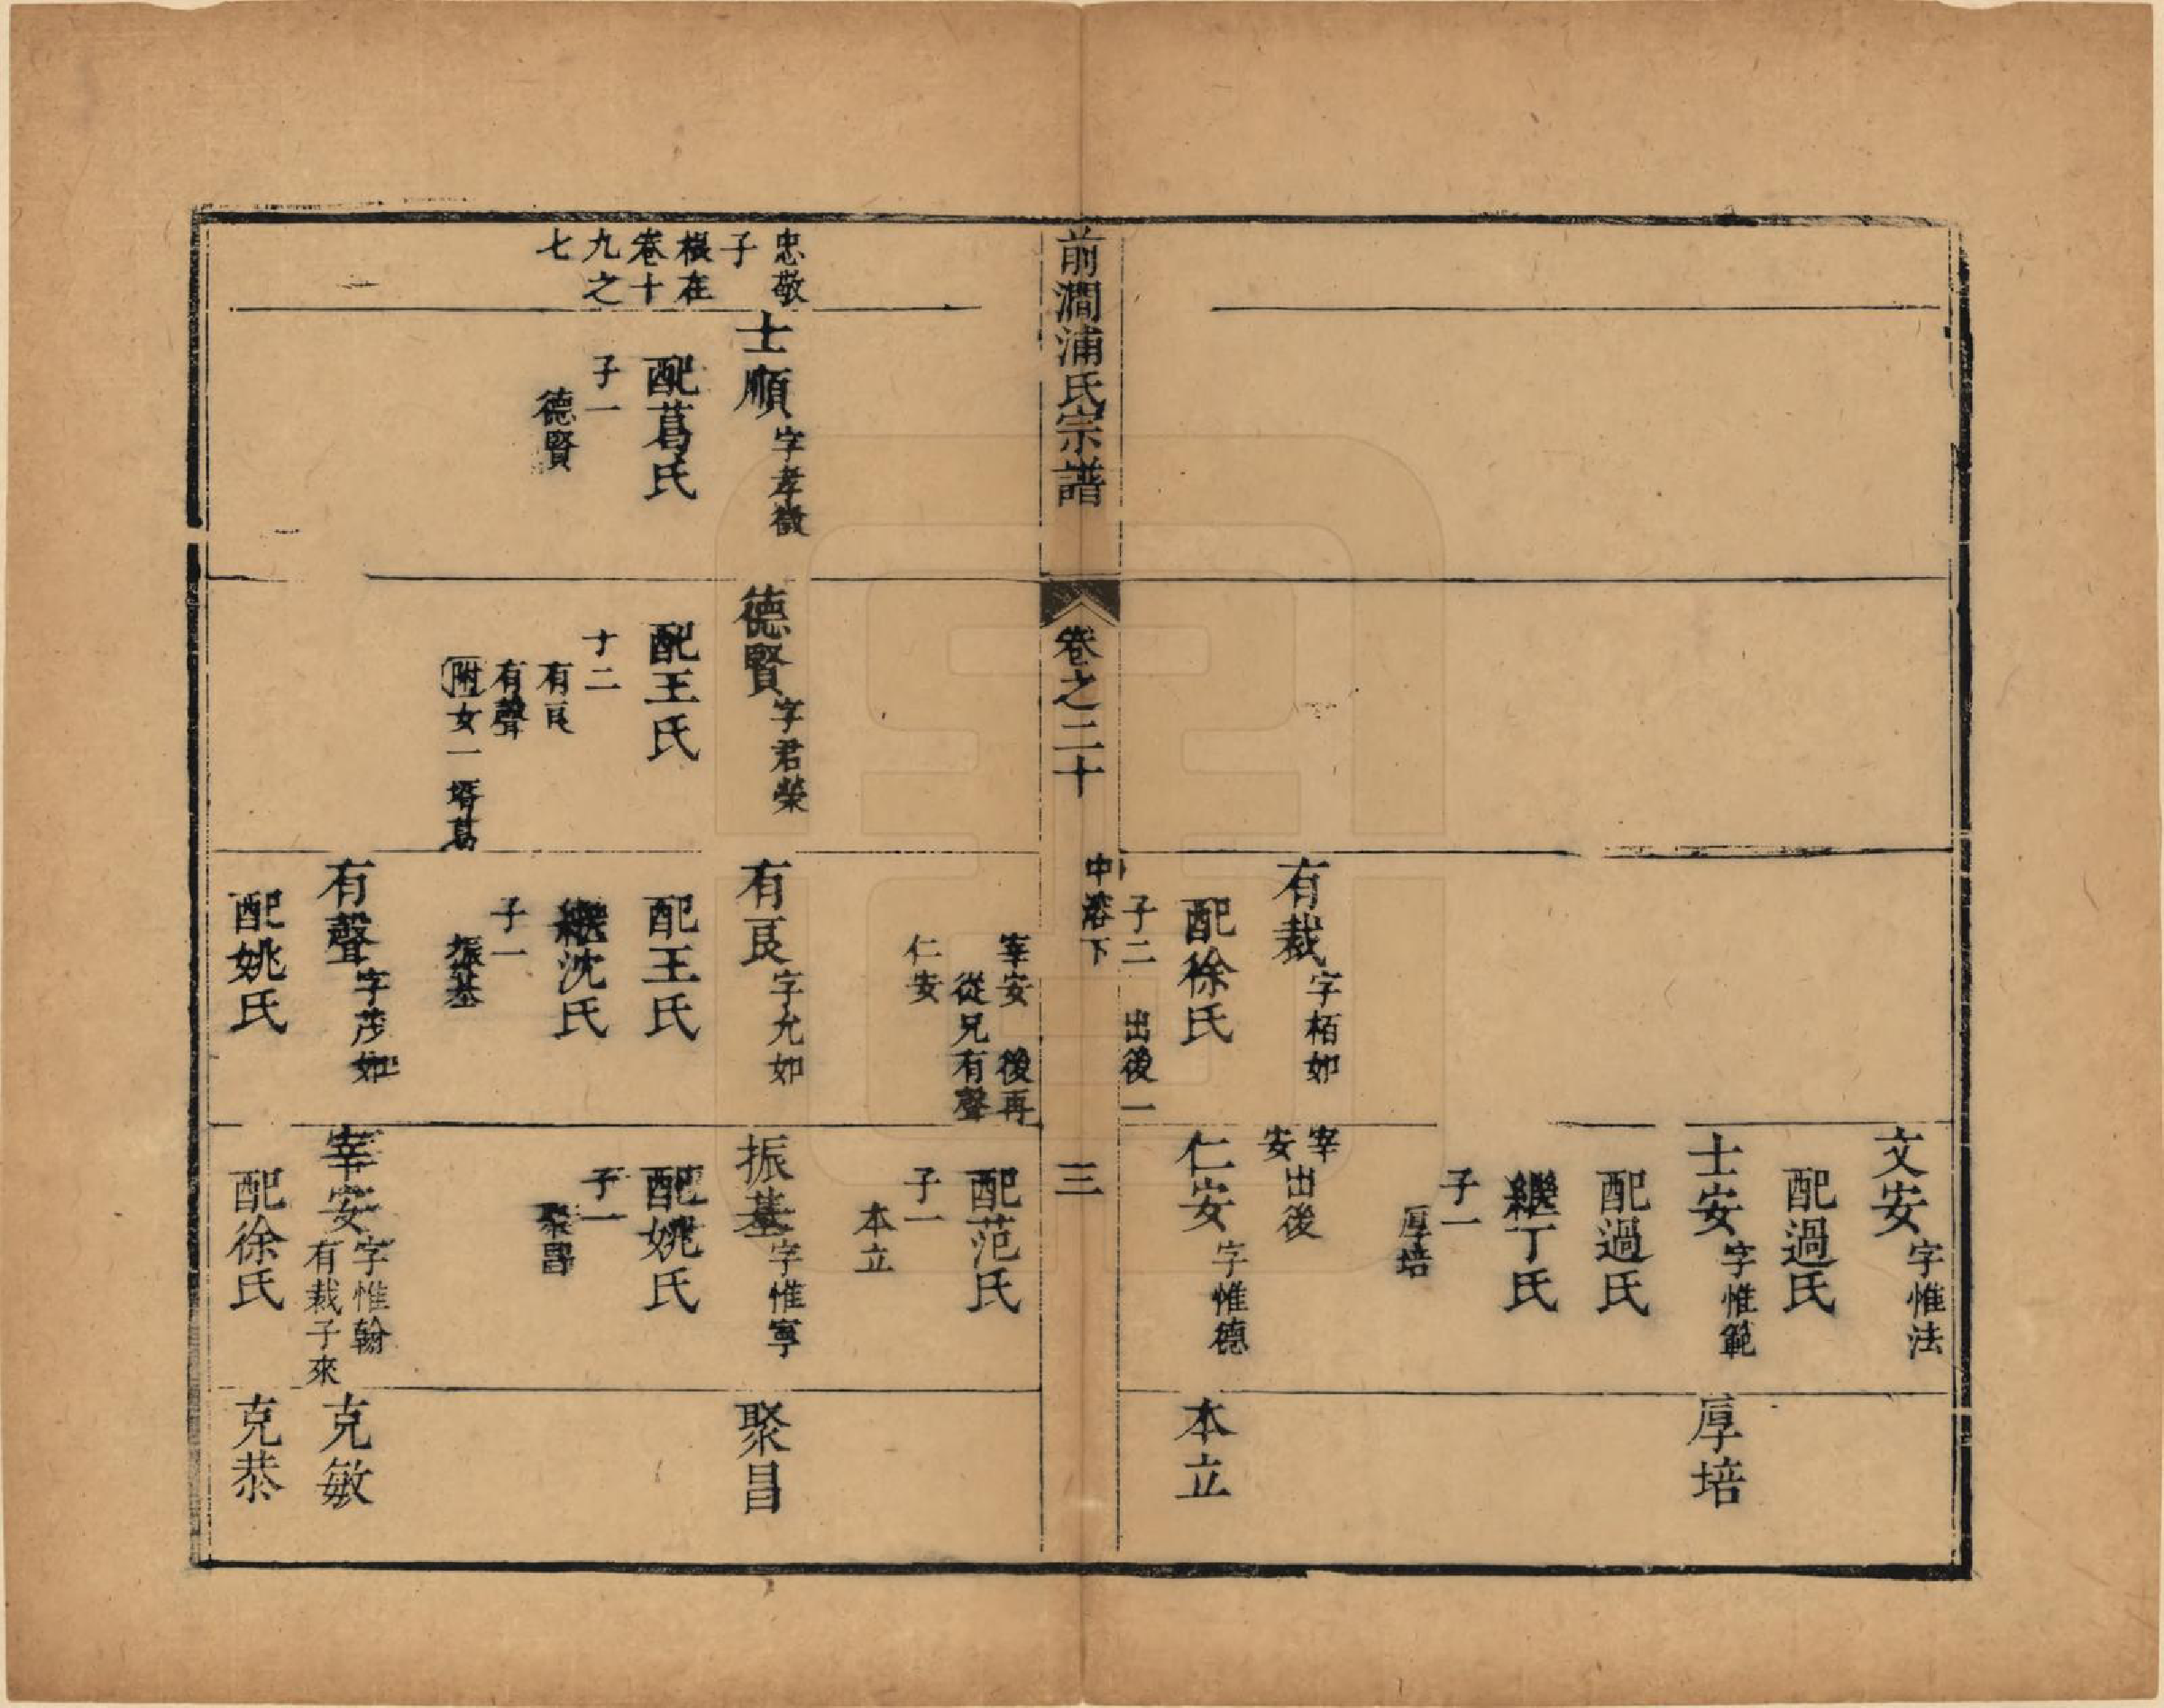 文安字惟法
配過氏
士安字惟範
配過氏
繼丁氏
子一
厚培
厚培
有裁字栢如
配徐氏
子二 出後一
宰安出後
仁安字惟德
本立
前澗浦氏宗譜
卷之二十
中 下
三
宰安 後再從兄有聲
仁安
配范氏
子一
本立
忠敬
子
根在
卷十
九之
七
士順字孝徵
配葛氏
子一
德賢
德賢字君榮
配王氏
子二
有良
有聲
附女一 壻葛
有良字允如
配王氏
繼沈氏
子一
振基
有聲字茂如
配姚氏
振基字惟寧
配姚氏
子一
聚昌
宰安字惟翰
有裁子來
配徐氏
聚昌
克敏
克恭